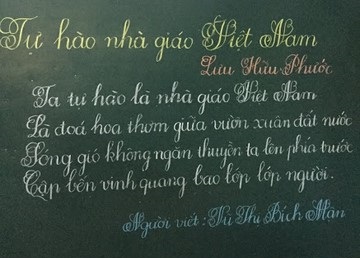 Tự hào nhà giáo Việt Nam
Lưu Hữu Phước
Ta tự hào là nhà giáo Việt Nam
Là đoá hoa thơm giữa vườn xuân đất nước
Sóng gió không ngăn thuyền ta lên phía trước
Cập bến vinh quang bao lớp lớp người.
Người viết: Từ Thị Bích Mận